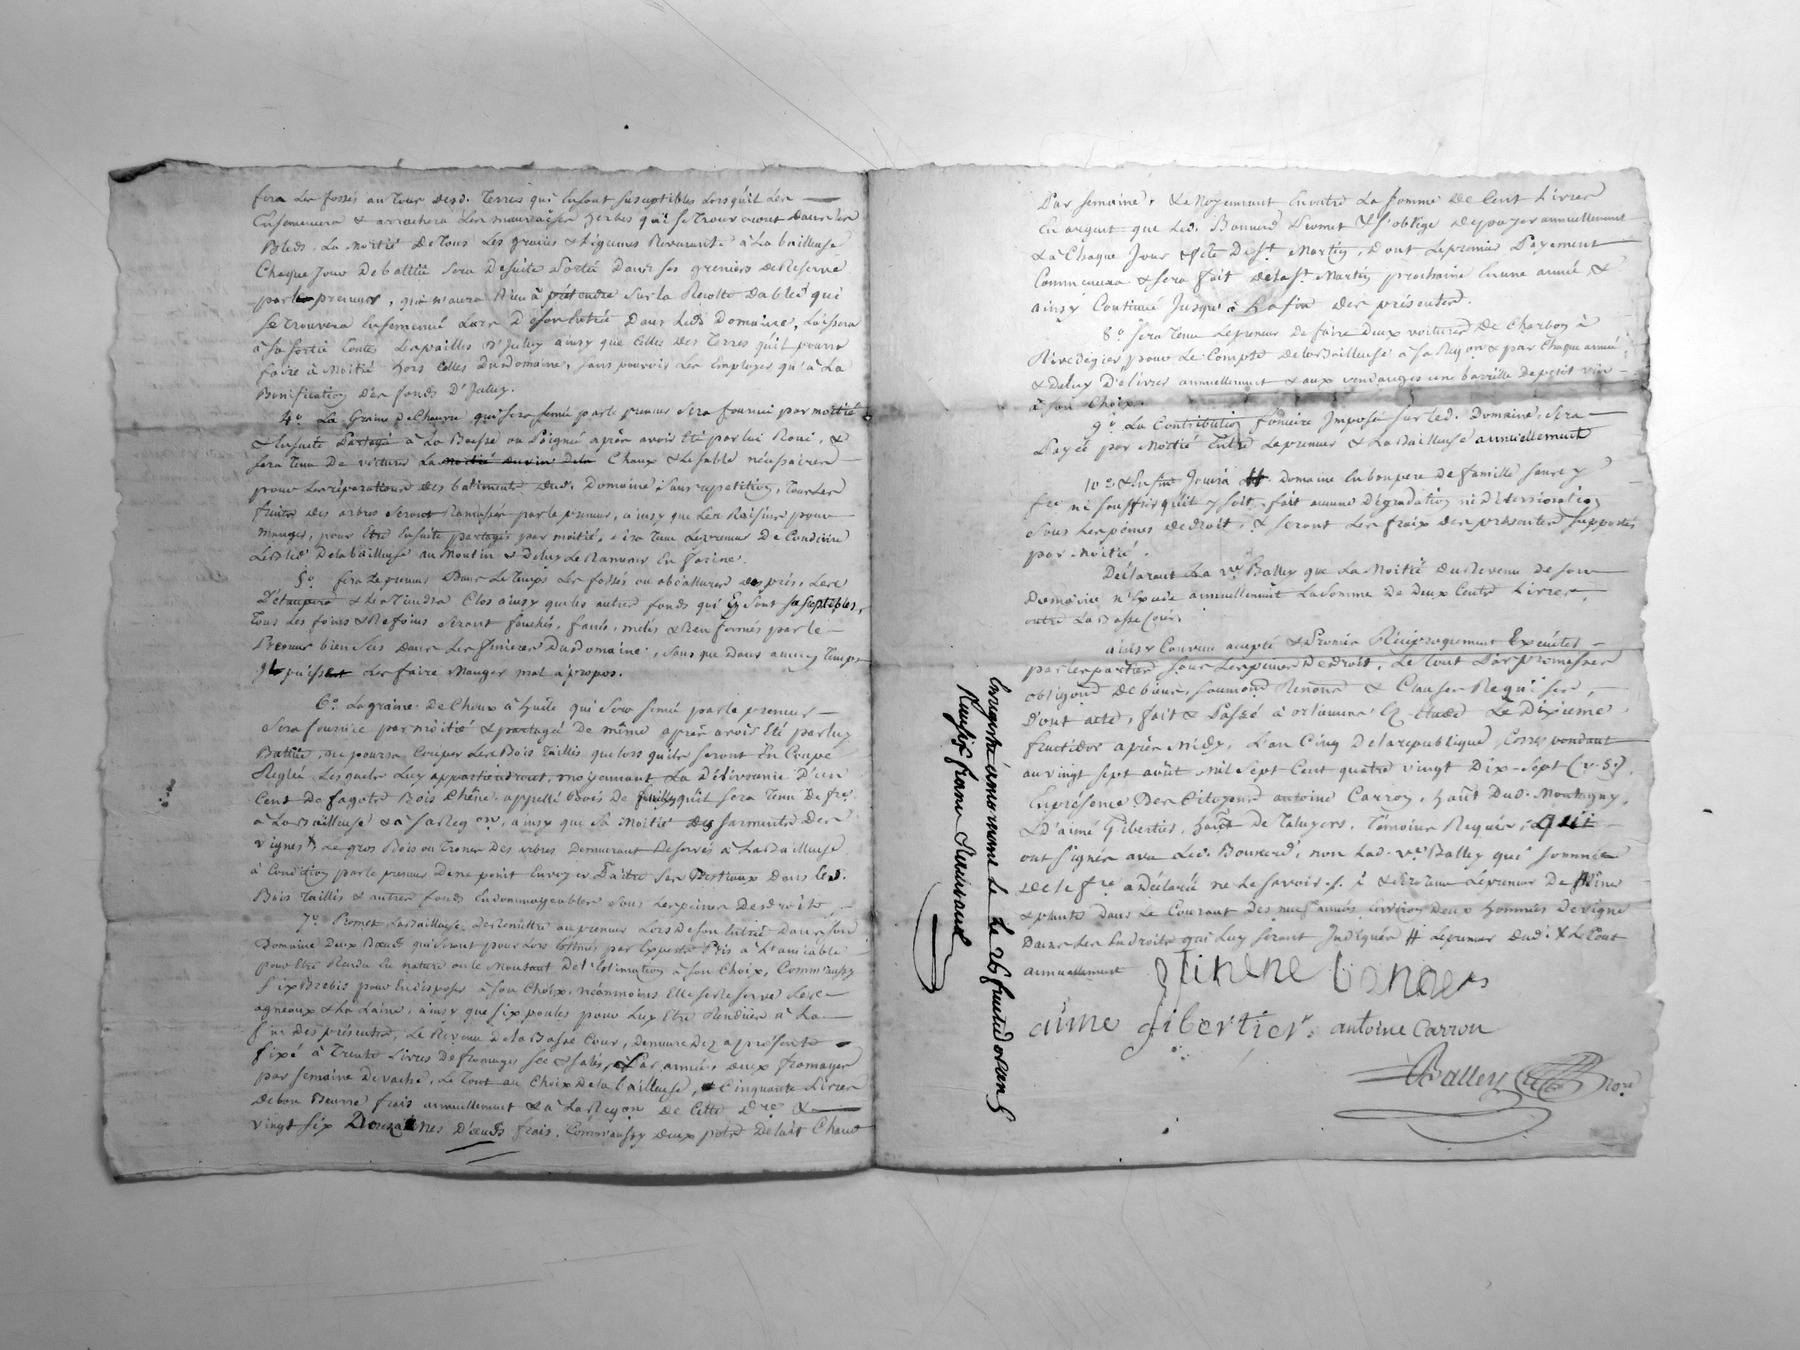 fera les fossés au tour desd. Terres qui en sont suseptibles lorsqu'il les
Ensemencera & arrachera les mauvaises herbes qui se trouveront dans les
Bleds. La moitié de tous les grains & Légumes Revenante à La bailleuse
Chaque Jour de battue sera de suite Portée dans ses greniers de Reserve
par le preneur, qui n'aura Rien à prétendre sur la Récolte de bled qui
se trouvera Ensemencé Lors d'son Entrée dans led. Domaine, Laissera
à sa sortie toutes les pailles d'Iceluy ainsy que celles des Terres qu'il pourra
faire à Moitié hors celles du Domaine, sans pouvoir les Employer qu'à La
Bonification des fonds d'Iceluy.
4°. La Graine de Chanvre qui sera semé par le preneur sera fourni par moitié
& Ensuite Partagé à La Boisse ou Poignée après avoir été par lui Roui, &
sera Tenu de voiturer la moitié du vin de la Chaux & le sable nécessaires
pour les réparations des batiments dud. Domaine, sans repetition, tous les
fruits des arbres seront Ramassés par le preneur, ainsy que les Raisins pour
manger, pour Etre Ensuite partagés par moitié, sera tenu le preneur de Conduire
Les bled de la bailleuse au Moulin & de luy Le Ramener En farine.
5°. fera Le preneur Dans Le Temps les fossés ou abéallures des prés, les
D'étaupera & les Tiendra Clos ainsy que les autres fonds qui En sont suseptibles,
Tous les foins & Refoins seront fauchés, fanés, mélés & Renfermés par le
Preneur bien secs dans les fenieres du Domaine, sans que dans aucun Temps
Il puisse les faire manger mal à propos.
6°. La graine de Choux à huile qui sera semé par le preneur
sera fournie par moitié & partagé de même après avoir été par luy
Battüe, ne pourra Couper les Bois Taillis que lors qu'ils seront En Coupe
Reglée, Lesquels Luy appartiendront, moyennant La Délivrance d'un
Cent de fagots Bois Chêne appellé boués de qu'il sera Tenu de fre.
à La Bailleuse & à sa Reqon, ainsy que sa Moitié des sarments des
vignes, Le gros Bois ou Troncs des arbres Demeurant Reservés à La Bailleuse
à Condition par le preneur de ne point Envoyer Paitre ses Bestiaux dans les
Bois Taillis & autres fonds Endommageables sous les peines de droits,
7°. Promet La Bailleuse, de Remettre au preneur Lors de son Entrée dans son
Domaine Deux Bœufs qui seront pour Lors Estimés par Experts Pris à L'amiable
pour Etre Rendu En nature ou le Montant de l'Estimation à son Choix, Comm'aussy
six Brebis pour En disposer à son Choix, néammoins Elle se Reserve Les
agneaux & La Laine, ainsy que six poules pour Luy Etre Rendües à La
fin des présentes, Le Revenu de la Basse Cour, Demeure dez apresent
fixé à Trente Livres de fromages sec & salés, Par année, deux fromages
par semaine de vache, Le Tout au Choix de la bailleuse, & Cinquante Livres
de bon Beurre frais annuellement & à La Reqon de Cette Dre. &
vingt six Douzaines d'œufs frais, Comm'aussy deux pots de lait Chaud
Par semaine, & Moyennant En outre La somme de Cent Livres
En argent que led. Bonnard Promet & s'oblige de payer annuellement
& à Chaque Jour & fête de St. Martin, dont Le premier Payement
Commencera & sera fait de la St. Martin prochaine En une année &
ainsy Continué Jusqu'à La fin des présentes.
8°. sera Tenu Le preneur de faire Deux voitures de Charbon à
Rive de gier pour Le Compte de la Bailleuse à sa Reqon & par Chaque année
& de luy D'élivrer annuellement & aux vendanges une barrille de petit vin
à son Choix.
9°. La Contribution fonciere Imposée sur led. Domaine, sera
Payée par Moitié Entre Le preneur & La Bailleuse annuellement
10°. & Enfin Jouira # Domaine En bon pere de famille sans y
fre ni souffrir qu'il y soit fait aucune dégradation ni déterrioration
sous les peines de droit, & seront les fraix des présentes supportés
par moitié.
Déclarant La ve. Balley que La Moitié du Revenu de son
Domaine n'Excede annuellement La somme de Deux Cents Livres,
outre La Basse Cour.
ainsy Convenu accepté & Promis Réciproquement Exécuter
par les parties sous les peines de droit, Le tout Par promesses
obligons. de biens, soumons. Renons. & Clauses Requises,
D'ont acte, fait & Passé à orliennas En Etude Le Dixieme
fructidor après Midy, L'an Cinq de la republique, Correspondant
au vingt sept août Mil Sept Cent quatre vingt Dix-Sept (v. s.)
En présence Des Citoyens antoine Carron, hant. dud. Montagny,
& d'aimé Gibertier, hant. de Taluyers, Témoins Requis, qui
ont signés avec Led. Bonnard, non Lad. ve. Balley qui sommée
de le fre. a Déclaré ne Le savoir
& planter Dans Le Courant des neuf années Environ Deux hommés de vigne
Dans Les Endroits qui Luy seront Indiqués # Le preneur dud. X Le Tout
annuellement
aime gibertier antoine Carron
Balley Nore
Enregistré à mornant Le 26 fructidor an 5
Reçu six francs